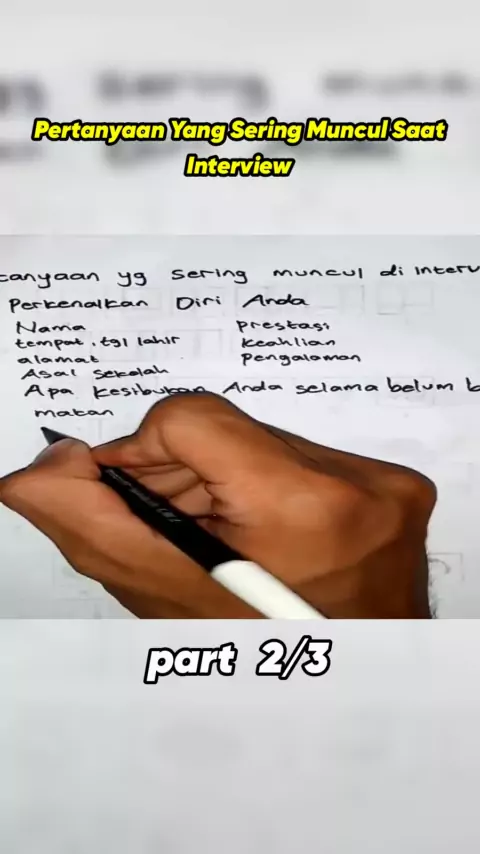 Pertanyaan Yang Sering Muncul Saat
Interview
yg sering muncul di
Perkenalkan Diri Anda
Nama
prestasi
tempat, tgl lahir
keahlian
alamat
Pengalaman
Asal sekolah
Apa kesibukan Anda selama belum
makan
part 2/3